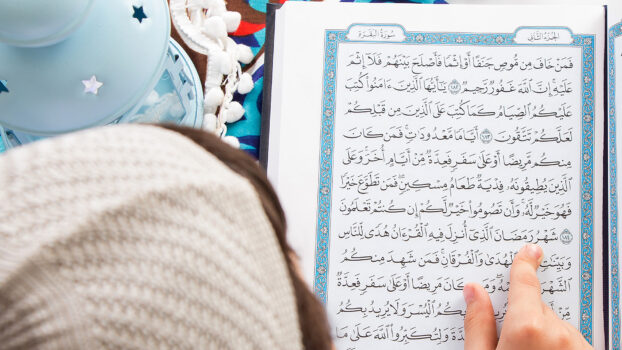 الجزء الثاني
سورة البقرة
فَمَنْ خَافَ مِن مُّوصٍ جَنَفًا أَوْ إِثْمًا فَأَصْلَحَ بَيْنَهُمْ فَلَآ إِثْمَ
عَلَيْهِ إِنَّ ٱللَّهَ غَفُورٌ رَّحِيمٌ ١٨٢ يَٰٓأَيُّهَا ٱلَّذِينَ ءَامَنُوا۟ كُتِبَ
عَلَيْكُمُ ٱلصِّيَامُ كَمَا كُتِبَ عَلَى ٱلَّذِينَ مِن قَبْلِكُمْ
لَعَلَّكُمْ تَتَّقُونَ ١٨٣ أَيَّامًا مَّعْدُودَٰتٍ فَمَن كَانَ
مِنكُم مَّرِيضًا أَوْ عَلَىٰ سَفَرٍ فَعِدَّةٌ مِّنْ أَيَّامٍ أُخَرَ وَعَلَى
ٱلَّذِينَ يُطِيقُونَهُۥ فِدْيَةٌ طَعَامُ مِسْكِينٍ فَمَن تَطَوَّعَ خَيْرًا
فَهُوَ خَيْرٌ لَّهُۥ وَأَن تَصُومُوا۟ خَيْرٌ لَّكُمْ إِن كُنتُمْ تَعْلَمُونَ
١٨٤ شَهْرُ رَمَضَانَ ٱلَّذِىٓ أُنزِلَ فِيهِ ٱلْقُرْءَانُ هُدًى لِّلنَّاسِ
وَبَيِّنَٰتٍ ٱلْهُدَىٰ وَٱلْفُرْقَانِ فَمَن شَهِدَ مِنكُمُ
ٱلشَّهْرَ كَانَ مَرِيضًا أَوْ عَلَىٰ سَفَرٍ فَعِدَّةٌ
مِّنْ بِكُمُ ٱلْيُسْرَ وَلَا يُرِيدُ بِكُمُ
وَلِتُكَبِّرُوا۟ ٱللَّهَ عَلَىٰ مَا